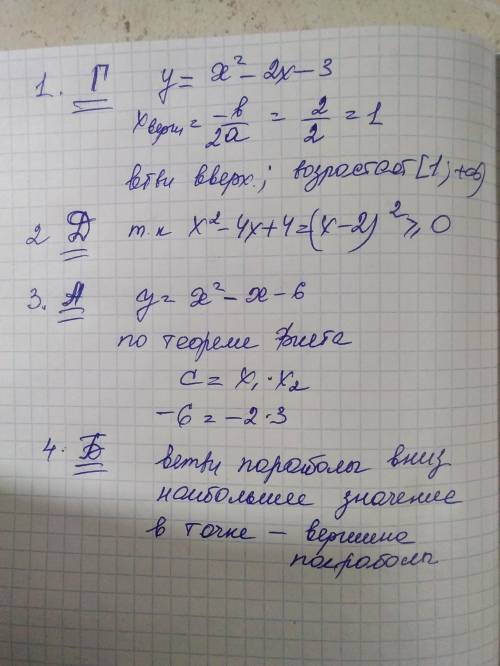 1. Г y = x² - 2x - 3
x верш = -в/2a = 2/2 = 1
втви вверх; возрастает [1; +∞)
2 Д т.к x² - 4x + 4 = (x - 2)² ⩾ 0
3. А y = x² - x - 6
по теореме Виета
c = x₁ · x₂
-6 = -2 · 3
4. Б ветви параболы вниз
наибольшее значение
в точке - вершина
параболы